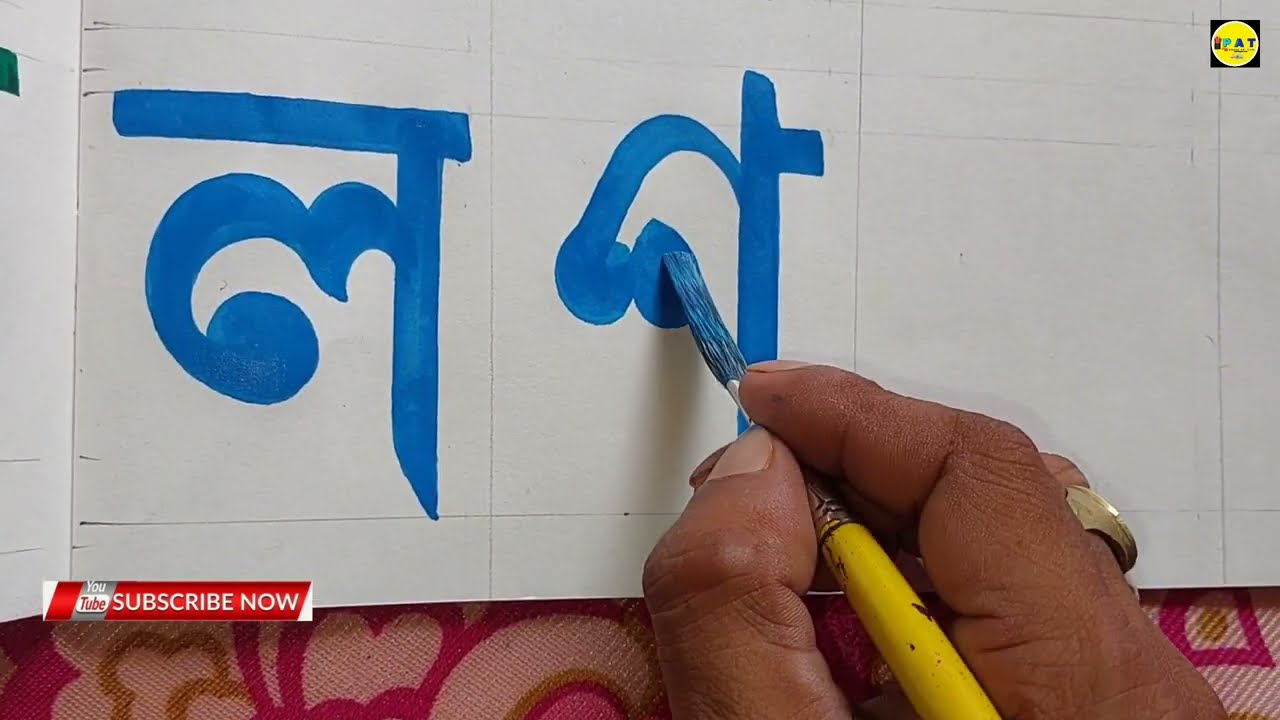 ল শ
PAT
You
Tube SUBSCRIBE NOW